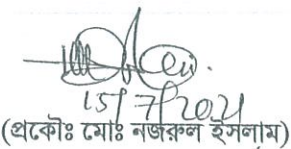 15/7/2021
(প্রকৌঃ মোঃ নজরুল ইসলাম)